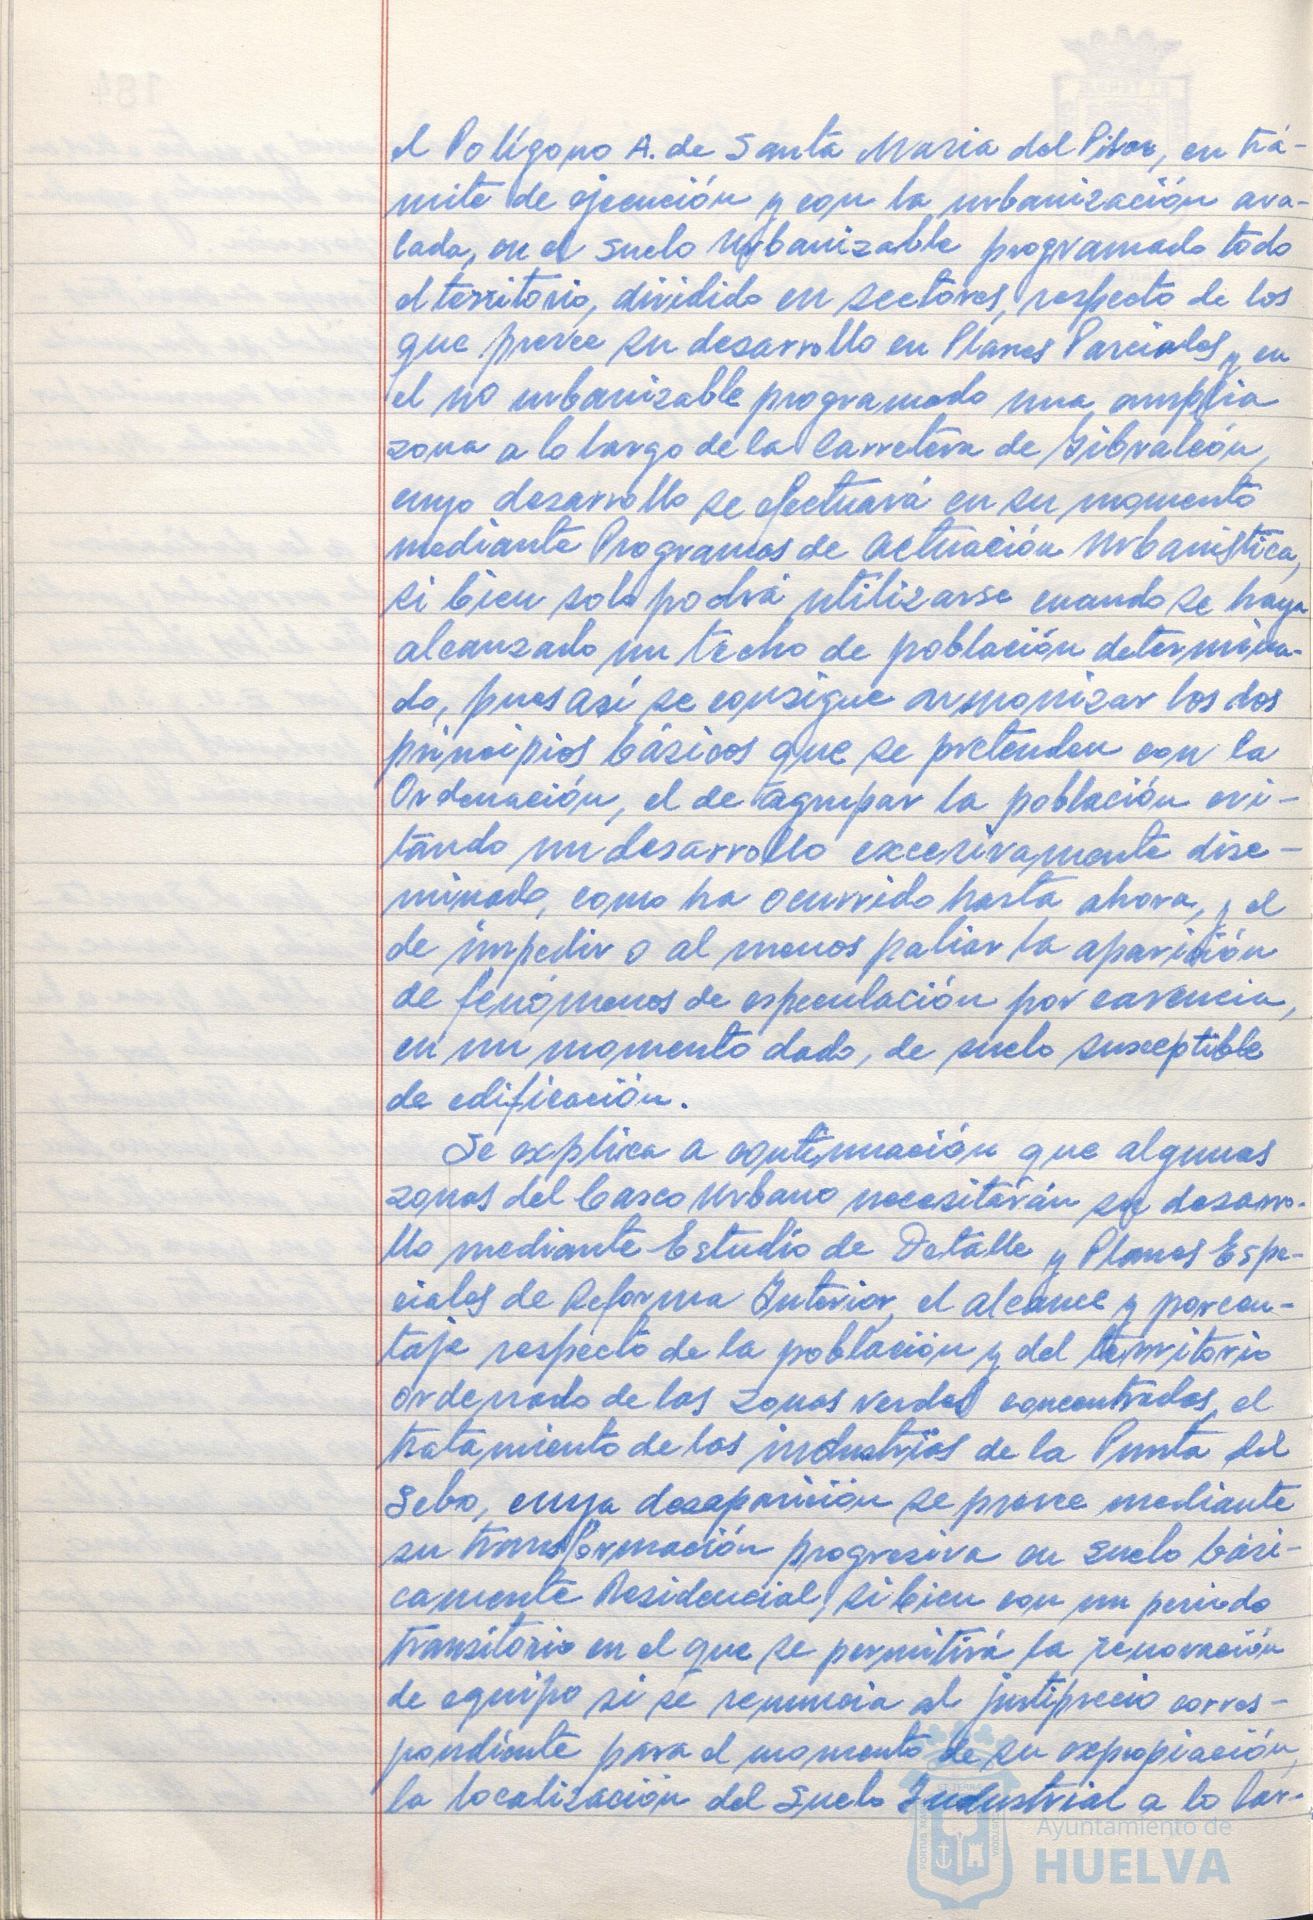 el Polígono A. de Santa Maria del Pilar, en trá-
mite de ejecución y con la urbanización ava-
lada, en el suelo Urbanizable programado todo
el territorio, dividido en sectores, respecto de los
que prevee su desarrollo en Planes Parciales, y en
el no urbanizable programado una amplia
zona a lo largo de la Carretera de Gibraleón,
cuyo desarrollo se efectuará en su momento
mediante Programas de Actuación Urbanística,
si bien solo podrá utilizarse cuando se haya
alcanzado un techo de población determina-
do, pues así se consigue armonizar los dos
principios básicos que se pretenden con la
Ordenación, el de agrupar la población evi-
tando un desarrollo excesivamente dise-
minado, como ha ocurrido hasta ahora, y el
de impedir o al menos paliar la aparición
de fenómenos de especulación por carencia,
en un momento dado, de suelo susceptible
de edificación.
Se explica a continuación que algunas
zonas del Casco Urbano necesitarán su desarro-
llo mediante Estudio de Detalle y Planes Espe-
ciales de Reforma Interior, el alcance y porcen-
taje respecto de la población y del territorio
ordenado de las zonas verdes concentradas, el
tratamiento de las industrias de la Punta del
Sebo, cuya desaparición se prevee mediante
su transformación progresiva en suelo bási-
camente Residencial, si bien con un periodo
transitorio en el que se permitirá la renovación
de equipo si se renuncia al justiprecio corres-
pondiente para el momento de su expropiación,
la localización del Suelo Industrial a lo lar-
Ayuntamiento de
HUELVA